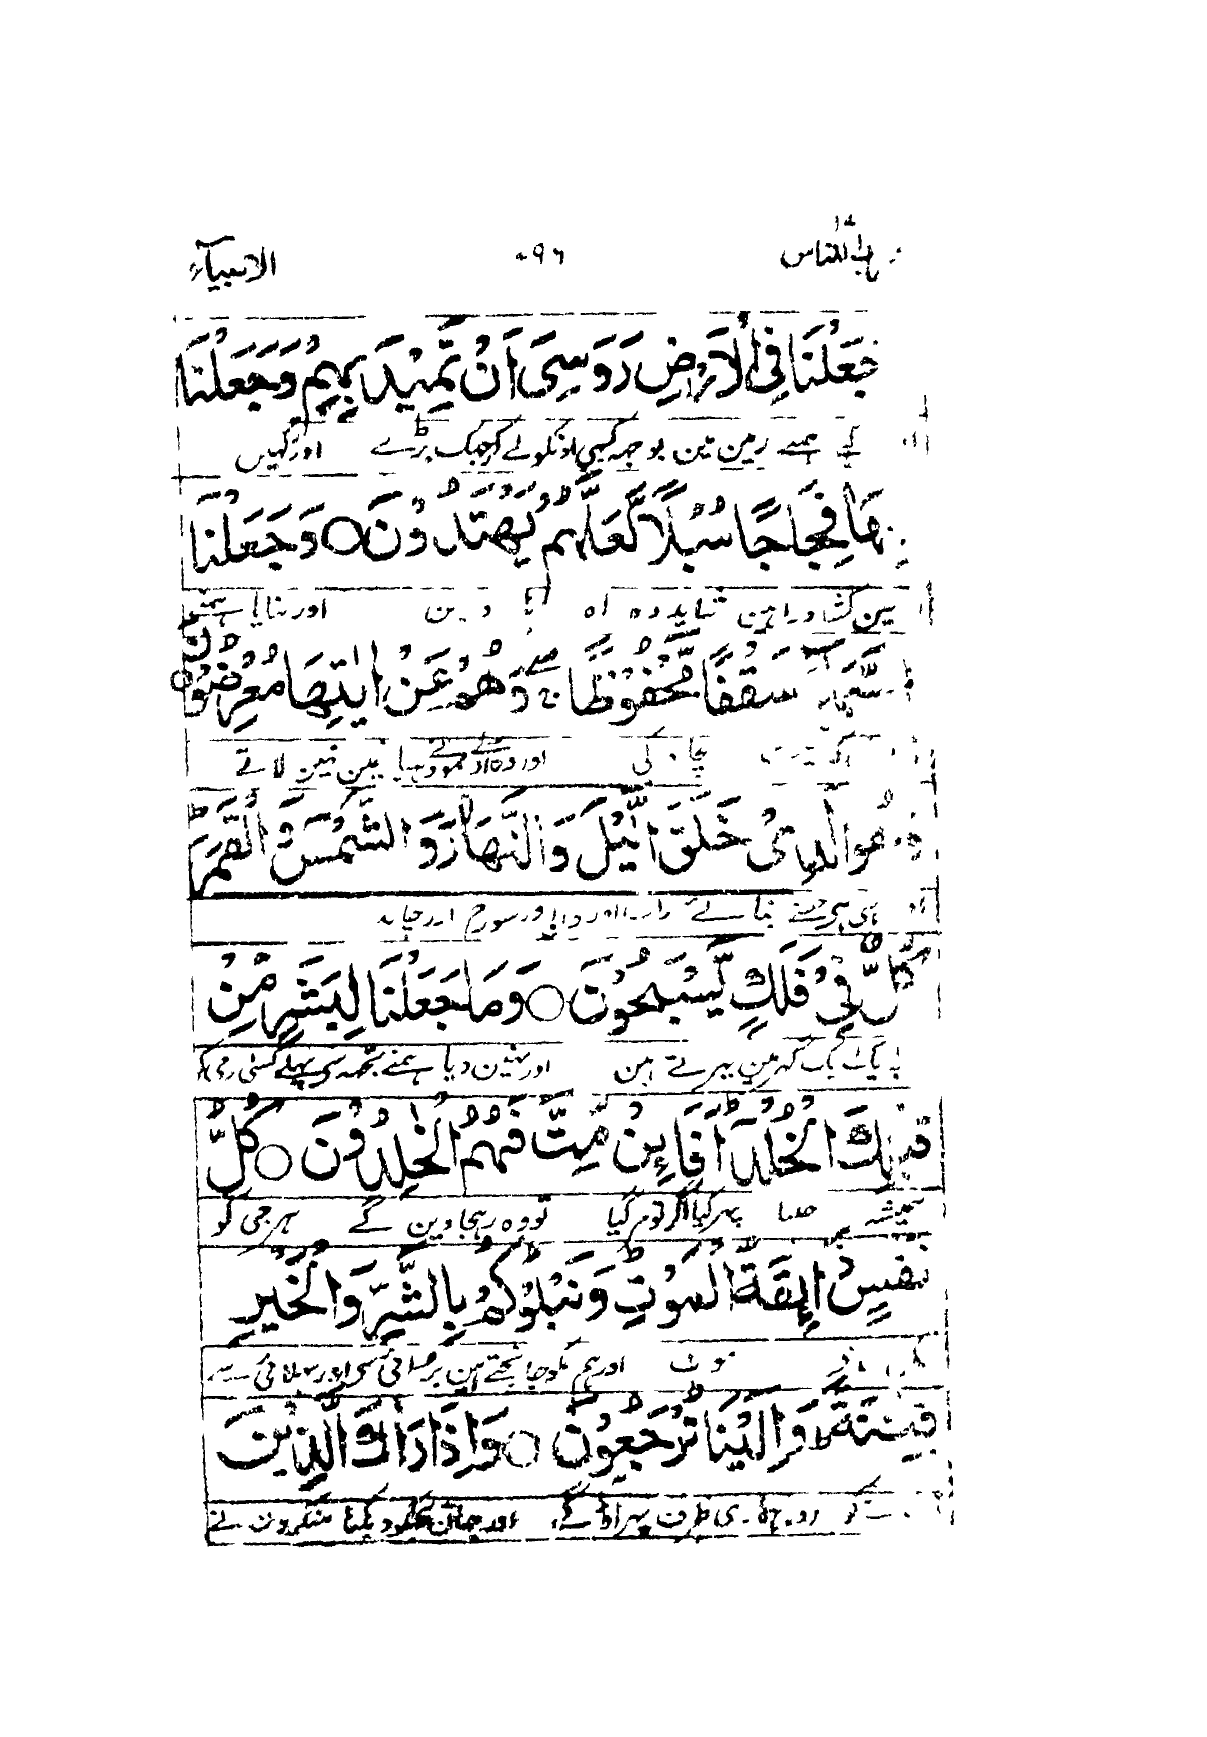 ۱۷
للناس ۰۹۶ الانبیاء
جَعَلْنَا فِی الْاَرْضِ رَوَسِیَ اَنْ تَمِیْدَ بِهِمْ وَجَعَلْنَا
ہمنے زمین مین بوجہہ کبہی اونکو لے کر جہک پڑے اور رکہیں
فِیْهَا فِجَاجًا سُبُلًا لَّعَلَّهُمْ یَهْتَدُوْنَ ○ وَجَعَلْنَا
مین کشادہ راہین شاید وہ راہ پا وین اور بنایا ہمنے
السَّمَآءَ سَقْفًا مَّحْفُوْظًا ۖ ج وَّهُمْ عَنْ اٰیٰتِهَا مُعْرِضُوْنَ ○
بچاو کی اور وہ اوسکے نمونے دہیان مین نہین لاتے
وَهُوَ الَّذِیْ خَلَقَ الَّیْلَ وَالنَّهَارَ وَالشَّمْسَ وَالْقَمَرَ ط
وہی ہی جسنے بنائے رات اور دن اور سورج اور چاند
كُلٌّ فِیْ فَلَكٍ یَّسْبَحُوْنَ ○ وَمَا جَعَلْنَا لِبَشَرٍ مِّنْ
ایک ایک گہر مین پہرتے ہین اور نہین دیا ہمنے تجہہ سے پہلے کسی آدمی کو
قَبْلِكَ الْخُلْدَ ط اَفَا۟ئِنْ مِّتَّ فَهُمُ الْخٰلِدُوْنَ ○ كُلُّ
ہمیشہ جینا پہر کیا اگر تو مر گیا تو وہ رہجاوین گے ہر جی کو
نَفْسٍ ذَآئِقَةُ الْمَوْتِ ط وَنَبْلُوْكُمْ بِالشَّرِّ وَالْخَیْرِ
موت اور ہم تمکو جانچتے ہین برائی سے اور بہلائی سے
فِتْنَةً ط وَاِلَیْنَا تُرْجَعُوْنَ ○ وَاِذَا رَاٰكَ الَّذِیْنَ
کو اور ہماری طرف پہر آؤگے اور جہان تجکو دیکہا منکرون نے